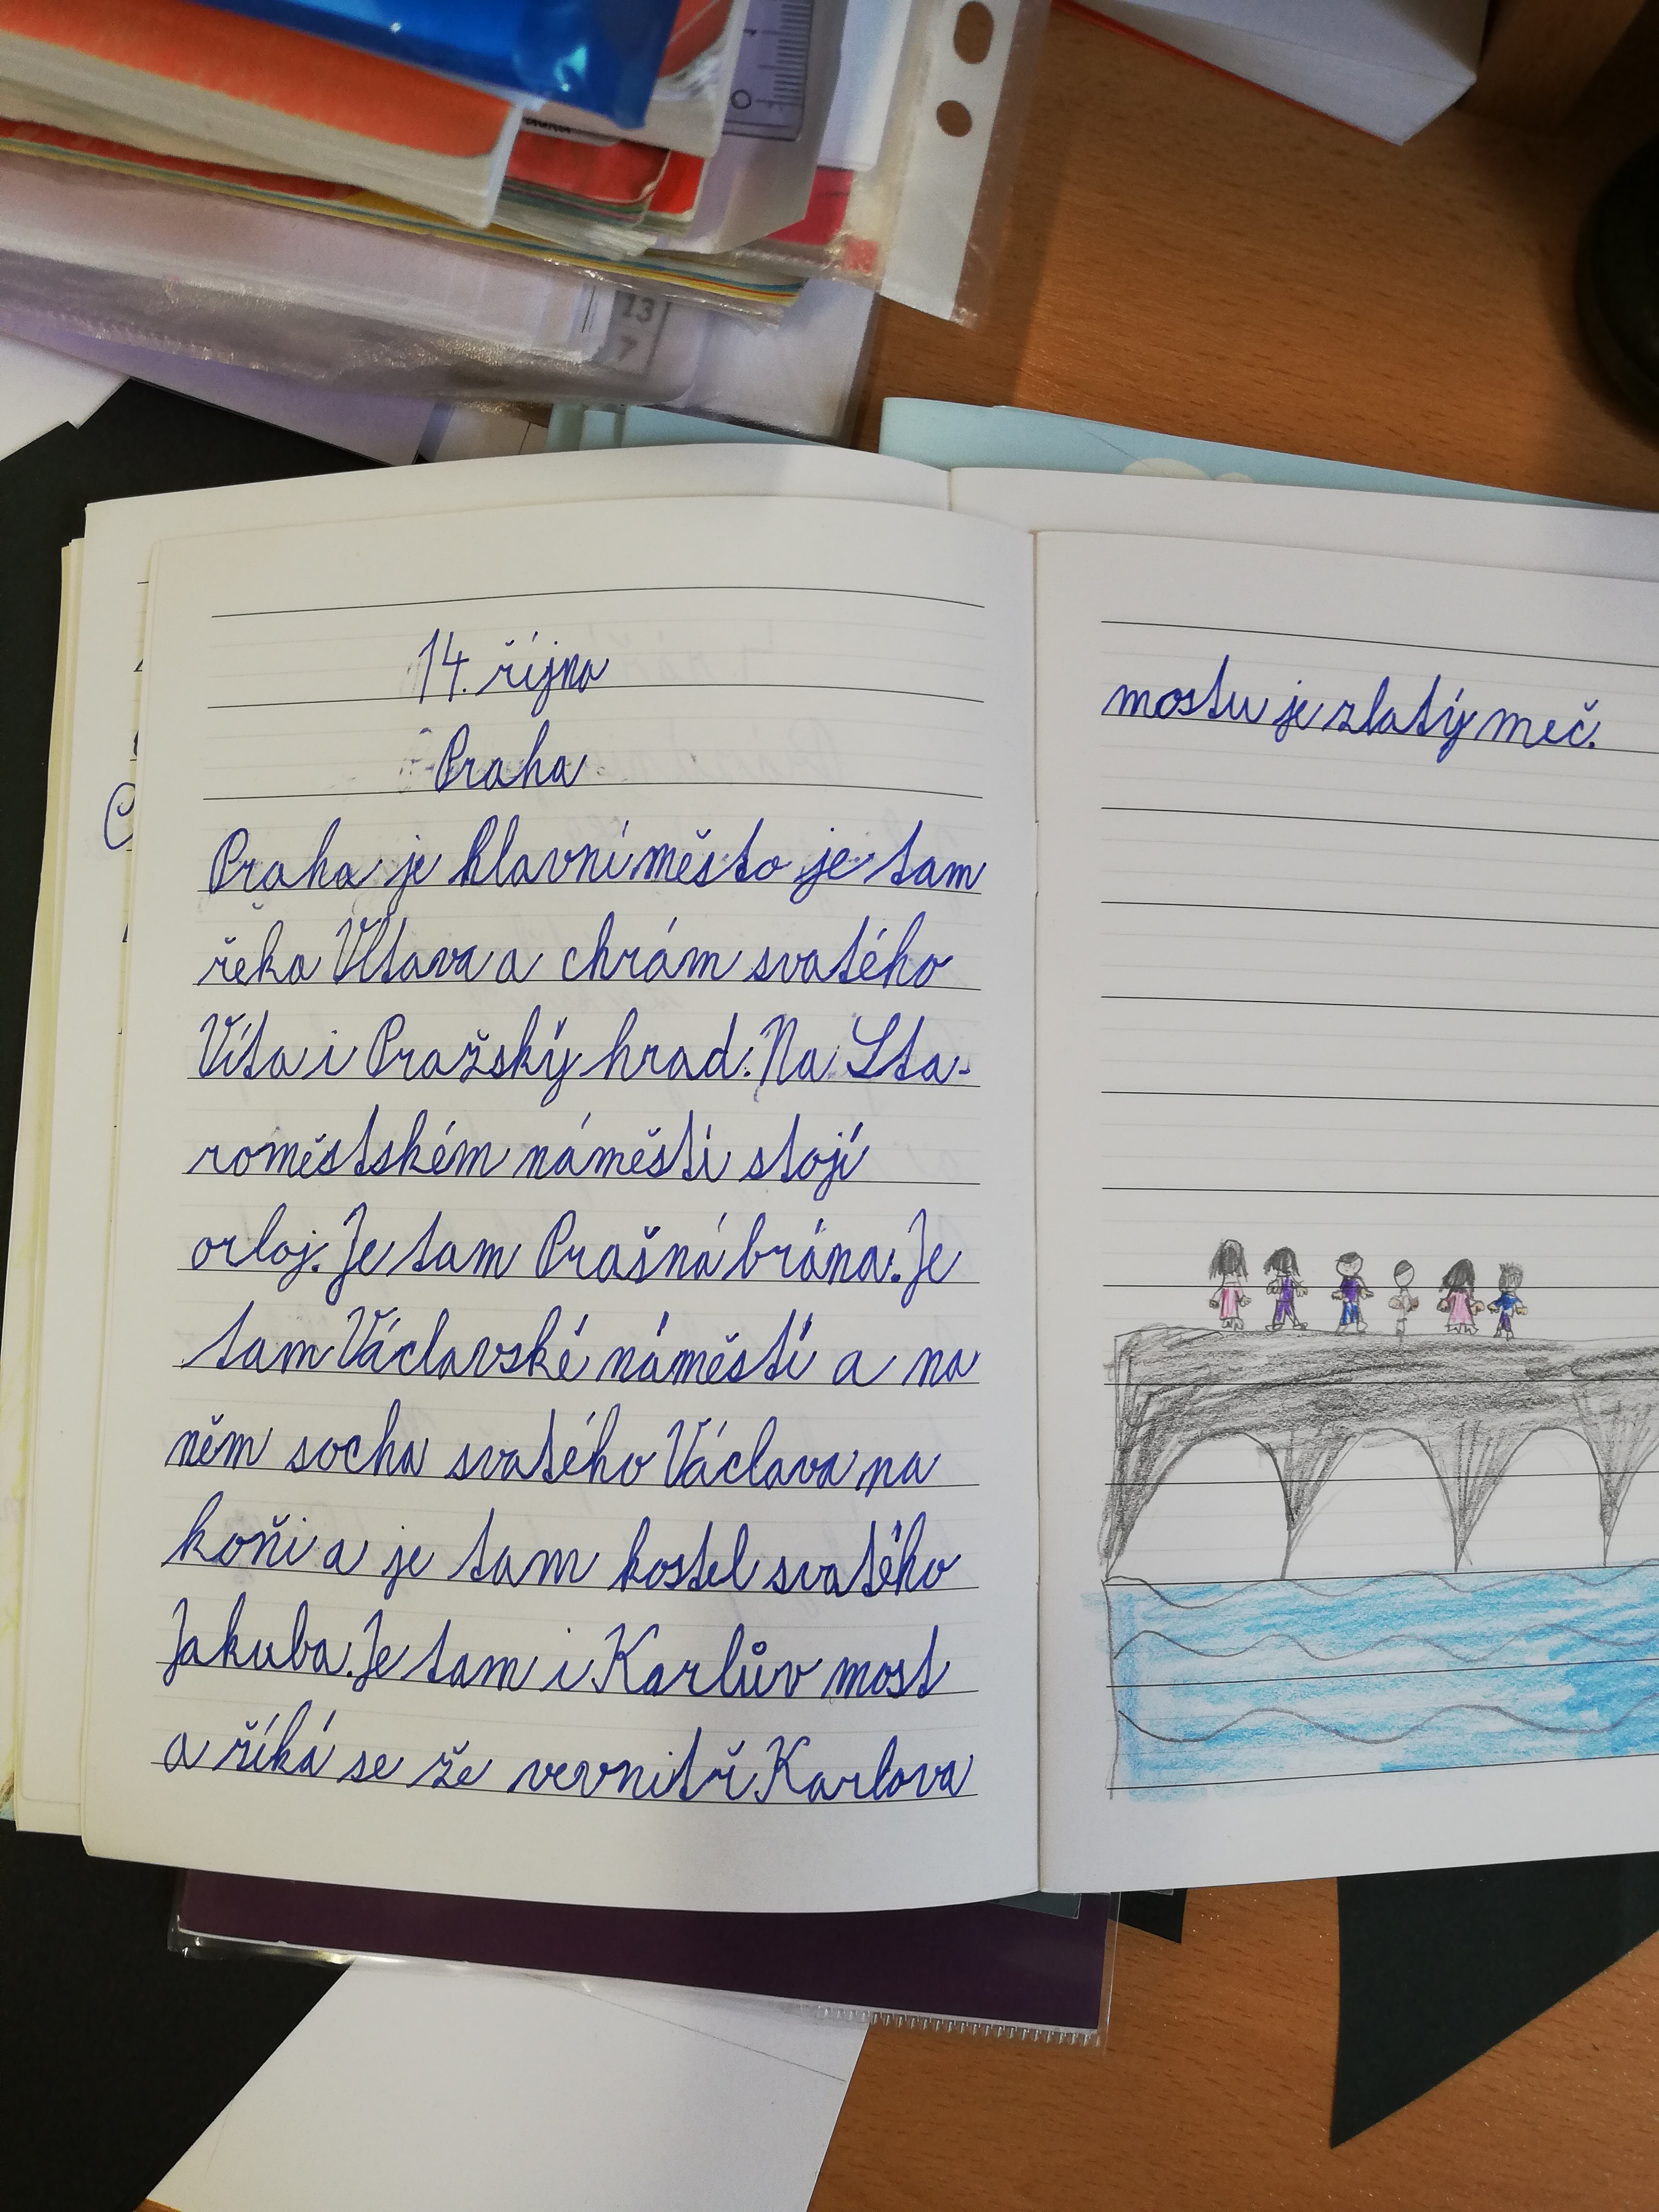 0 1
13
7
14. října
Praha
Praha je hlavní město je tam
řeka Vltava a chrám svatého
Víta i Pražský hrad. Na Sta-
roměstském náměstí stojí
orloj. Je tam Prašná brána. Je
tam Václavské náměstí a na
něm socha svatého Václava na
koňi a je tam kostel svatého
Jakuba. Je tam i Karlův most
a říká se že vevnitř Karlova
mostu je zlatý meč.